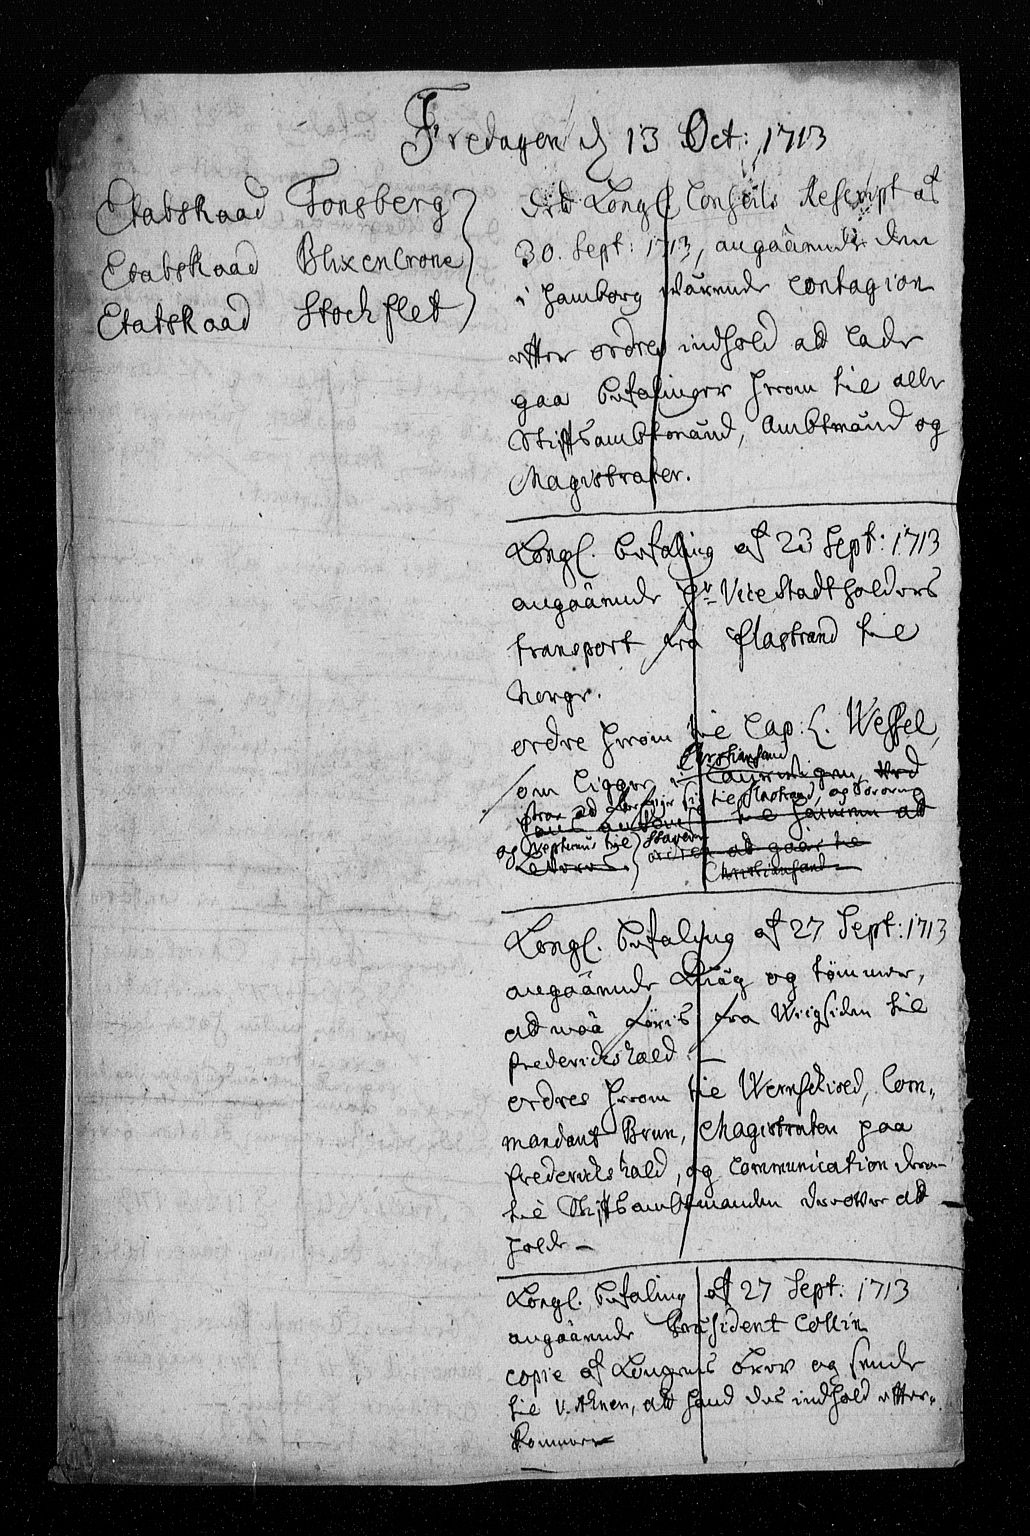 Fredagen d 13 Oct: 1713
Etatsraad Tonsberg
Etatsraad Blixencrone
Etatsraad Stochflet
Kongl Conseils Rescript af
30. Sept: 1713, angaaende den
i Hamborg værende contagion
efter ordres indhold at lade
gaa befalinger herom til alle
Stiftsambtmænd, Ambtmænd og
Magistrater.
Kongl. befaling af 23 Sept: 1713
angaaende Hr Vicestadtholders
transport fra Flastrand til
Norge.
ordre herom til Cap: L. Wessel,
som ligger i
Christiansand
til Flastrand, og
og Neptunus til Stavern
ordres at gaae til
Christiansand
Kongl. befaling af 27 Sept: 1713
angaaende og tømmer,
at maa føris fra Wiigsiden til
Friderichshald.
ordres herom til Wernschiold, Com-
mandant Brun, Magistraten paa
Friderichshald, og communication
til Stiftsambtmanden derover at
holde
Kongl. befaling af 27 Sept: 1713
angaaende Præsident Collin
copie af Kongens brev og sende
til v. Ahnen, at hand des indhold efter-
kommer